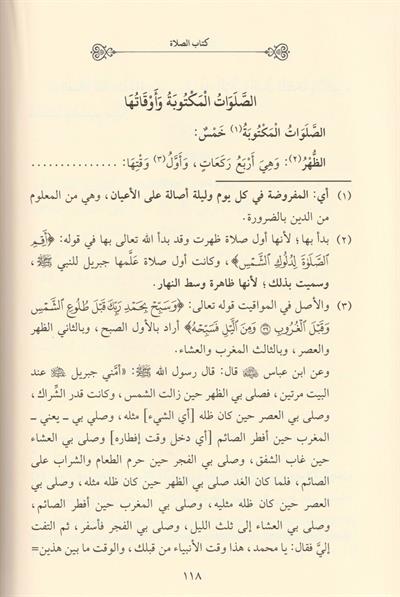 كتاب الصلاة
الصَّلَوَاتُ المَكْتُوبَةُ وَأَوْقَاتُهَا
الصَّلَوَاتُ المَكْتُوبَةُ(١) خَمْسٌ:
الظُّهْرُ(٢): وَهِيَ أَرْبَعُ رَكَعَاتٍ، وَأَوَّلُ(٣) وَقْتِهَا: ...............
(١) أي: المفروضة في كل يوم وليلة أصالة على الأعيان، وهي من المعلوم
من الدين بالضرورة.
(٢) بدأ بها؛ لأنها أول صلاة ظهرت وقد بدأ الله تعالى بها في قوله: ﴿أَقِمِ
الصَّلَوٰةَ لِدُلُوكِ الشَّمْسِ﴾، وكانت أول صلاة علَّمها جبريل للنبي ﷺ،
وسميت بذلك؛ لأنها ظاهرة وسط النهار.
(٣) والأصل في المواقيت قوله تعالى: ﴿وَسَبِّحْ بِحَمْدِ رَبِّكَ قَبْلَ طُلُوعِ الشَّمْسِ
وَقَبْلَ الْغُرُوبِ ۝ وَمِنَ الَّيْلِ فَسَبِّحْهُ﴾ أراد بالأول الصبح، وبالثاني الظهر
والعصر، وبالثالث المغرب والعشاء.
وعن ابن عباس قال: قال رسول الله ﷺ: «أمَّني جبريل عند
البيت مرتين، فصلى بي الظهر حين زالت الشمس، وكانت قدر الشِّراك،
وصلى بي العصر حين كان ظله [أي الشيء] مثله، وصلي بي ـ يعني ـ
المغرب حين أفطر الصائم [أي دخل وقت إفطاره] وصلى بي العشاء
حين غاب الشفق، وصلى بي الفجر حين حرم الطعام والشراب على
الصائم، فلما كان الغد صلى بي الظهر حين كان ظله مثله، وصلى بي
العصر حين كان ظله مثليه، وصلى بي المغرب حين أفطر الصائم،
وصلى بي العشاء إلى ثلث الليل، وصلى بي الفجر فأسفر، ثم التفت
إليَّ فقال: يا محمد، هذا وقت الأنبياء من قبلك، والوقت ما بين هذين=
١١٨